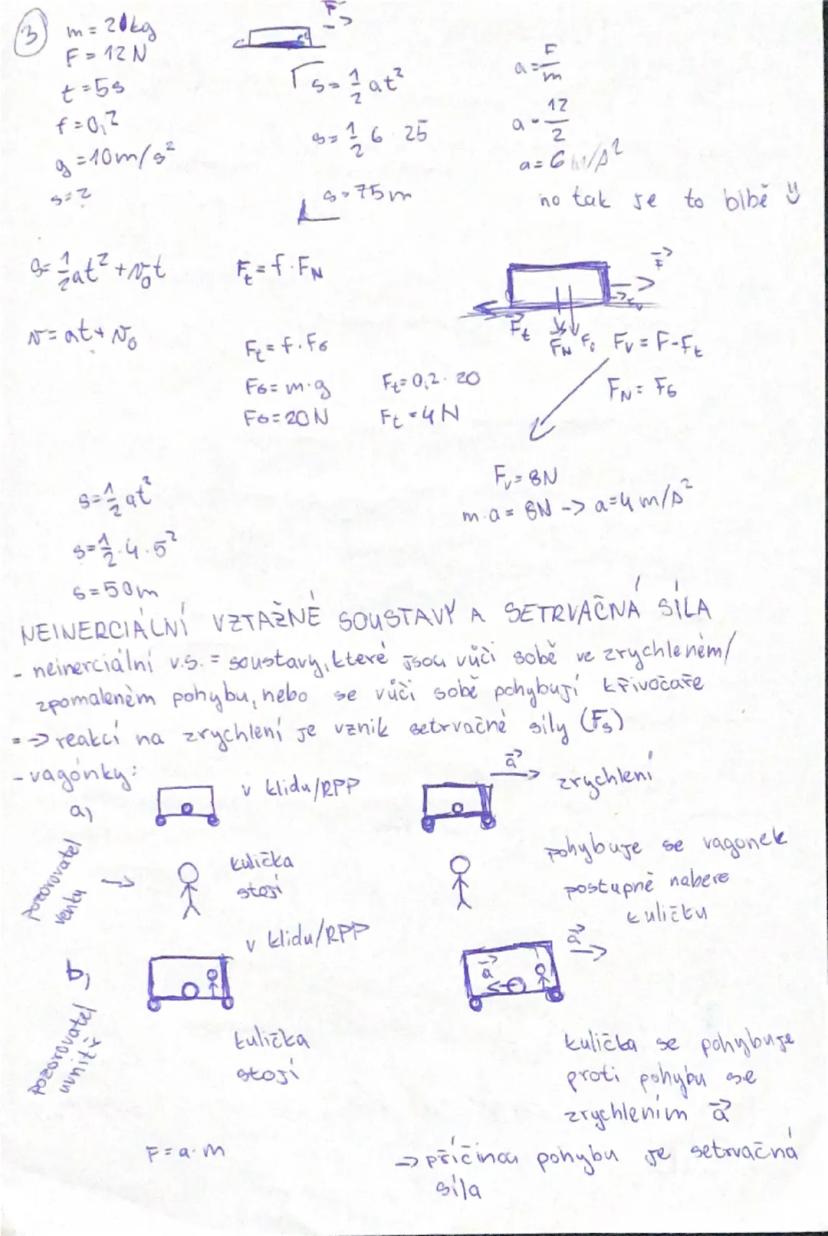 3
m = 2kg
F = 12N
t = 5s
f = 0,2
g = 10m/s²
s = ?
F
s = 1/2 at²
s = 1/2 6 · 25
s = 75m
a = F/m
a = 12/2
a = 6 m/s²
no tak je to blbě
s = 1/2 at² + v₀t
v = at + v₀
Ft = f · FN
Ft = f · FG
FG = m · g
FG = 20N
Ft = 0,2 · 20
Ft = 4N
F
Ft
FN
FG
Fv = F - Ft
FN = FG
Fv = 8N
m · a = 8N -> a = 4 m/s²
s = 1/2 at²
s = 1/2 · 4 · 5²
s = 50m
NEINERCIÁLNÍ VZTAŽNÉ SOUSTAVY A SETRVAČNÁ SÍLA
- neinerciální v.s. = soustavy, které jsou vůči sobě ve zrychleném/
zpomaleném pohybu, nebo se vůči sobě pohybují křivočaře
=-> reakcí na zrychlení je vznik setrvačné síly (Fs)
- vagónky:
a)
v klidu/RPP
a
zrychlení
pozorovatel
venku
kulička
stojí
pohybuje se vagonek
postupně nabere
kuličku
b)
v klidu/RPP
a
a
pozorovatel
uvnitř
kulička
stojí
kulička se pohybuje
proti pohybu se
zrychlením a
F = a · m
-> příčinou pohybu je setrvačná
síla